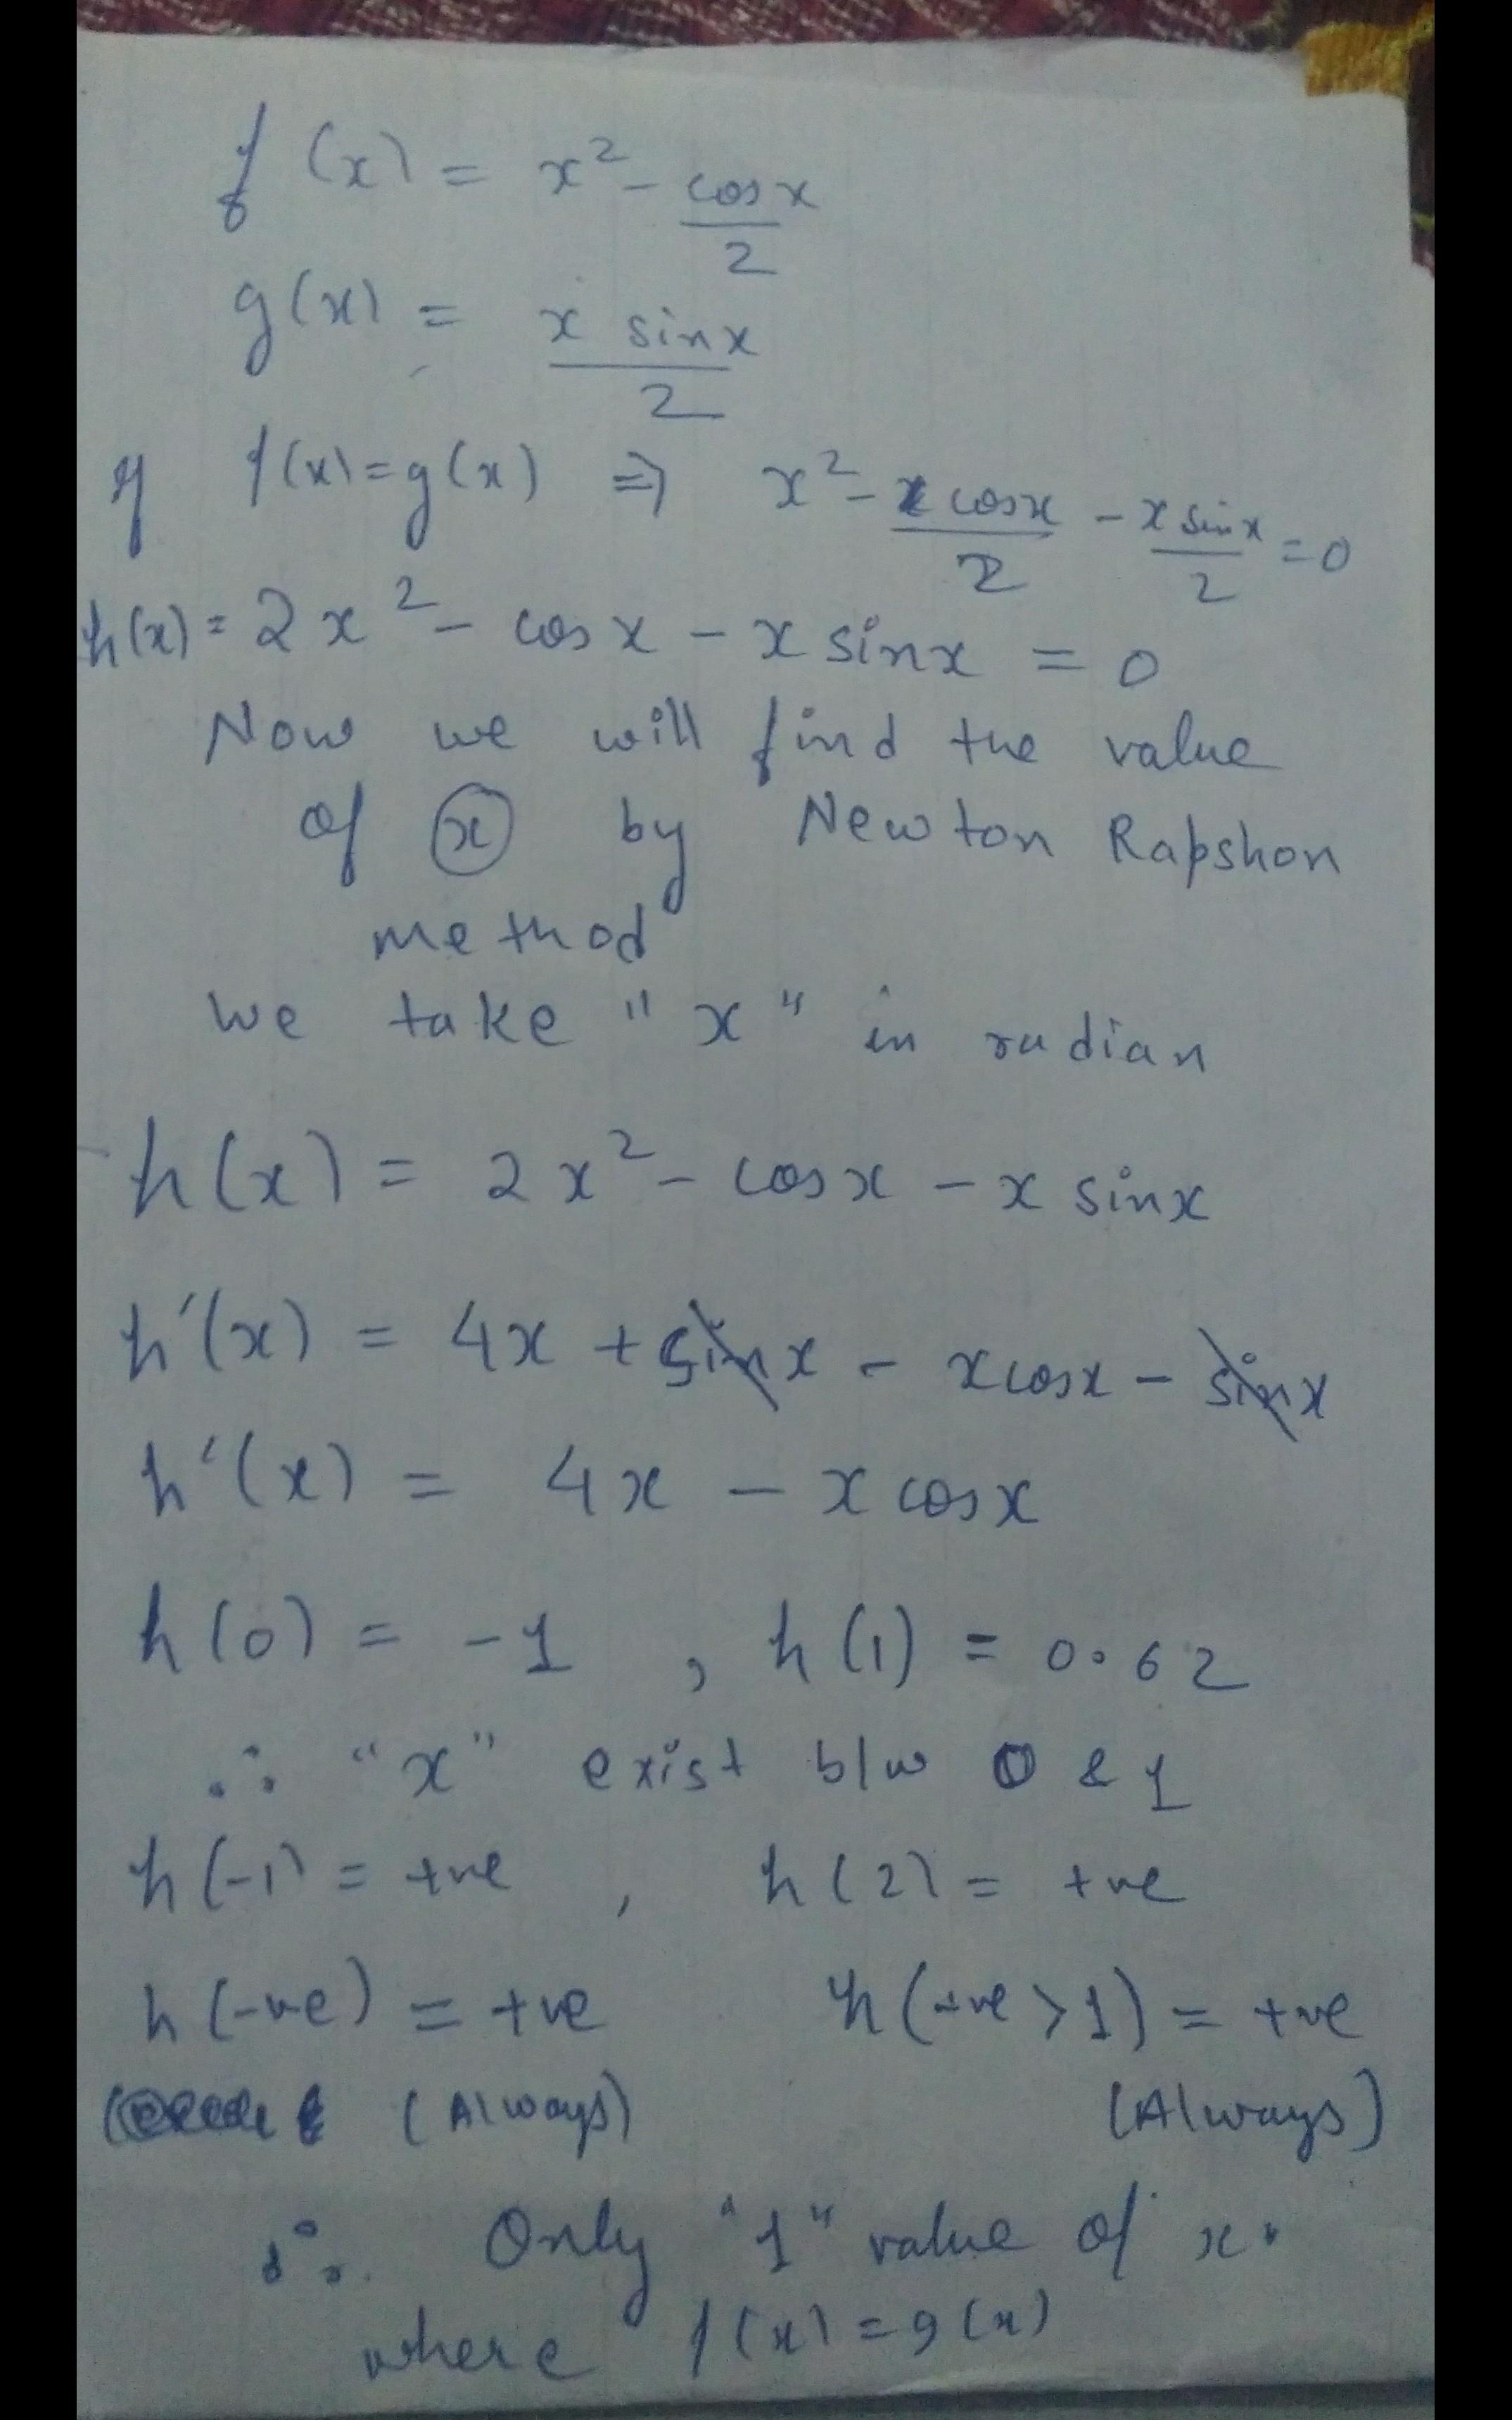 f(x) = x² - cosx/2
g(x) = x sinx/2
If f(x)=g(x) ⇒ x² - cosx/2 - x sinx/2 = 0
h(x) = 2x² - cosx - x sinx = 0
Now we will find the value
of x by Newton Rapshon
method
we take "x" in radian
h(x) = 2x² - cosx - x sinx
h'(x) = 4x + sinx - xcosx - sinx
h'(x) = 4x - x cosx
h(0) = -1 , h(1) = 0.62
∴ "x" exist b/w 0 & 1
h(-1) = +ve , h(2) = +ve
h(-ve) = +ve h(+ve>1) = +ve
(Always) (Always)
∴ Only "1" value of x.
where f(x)=g(x)